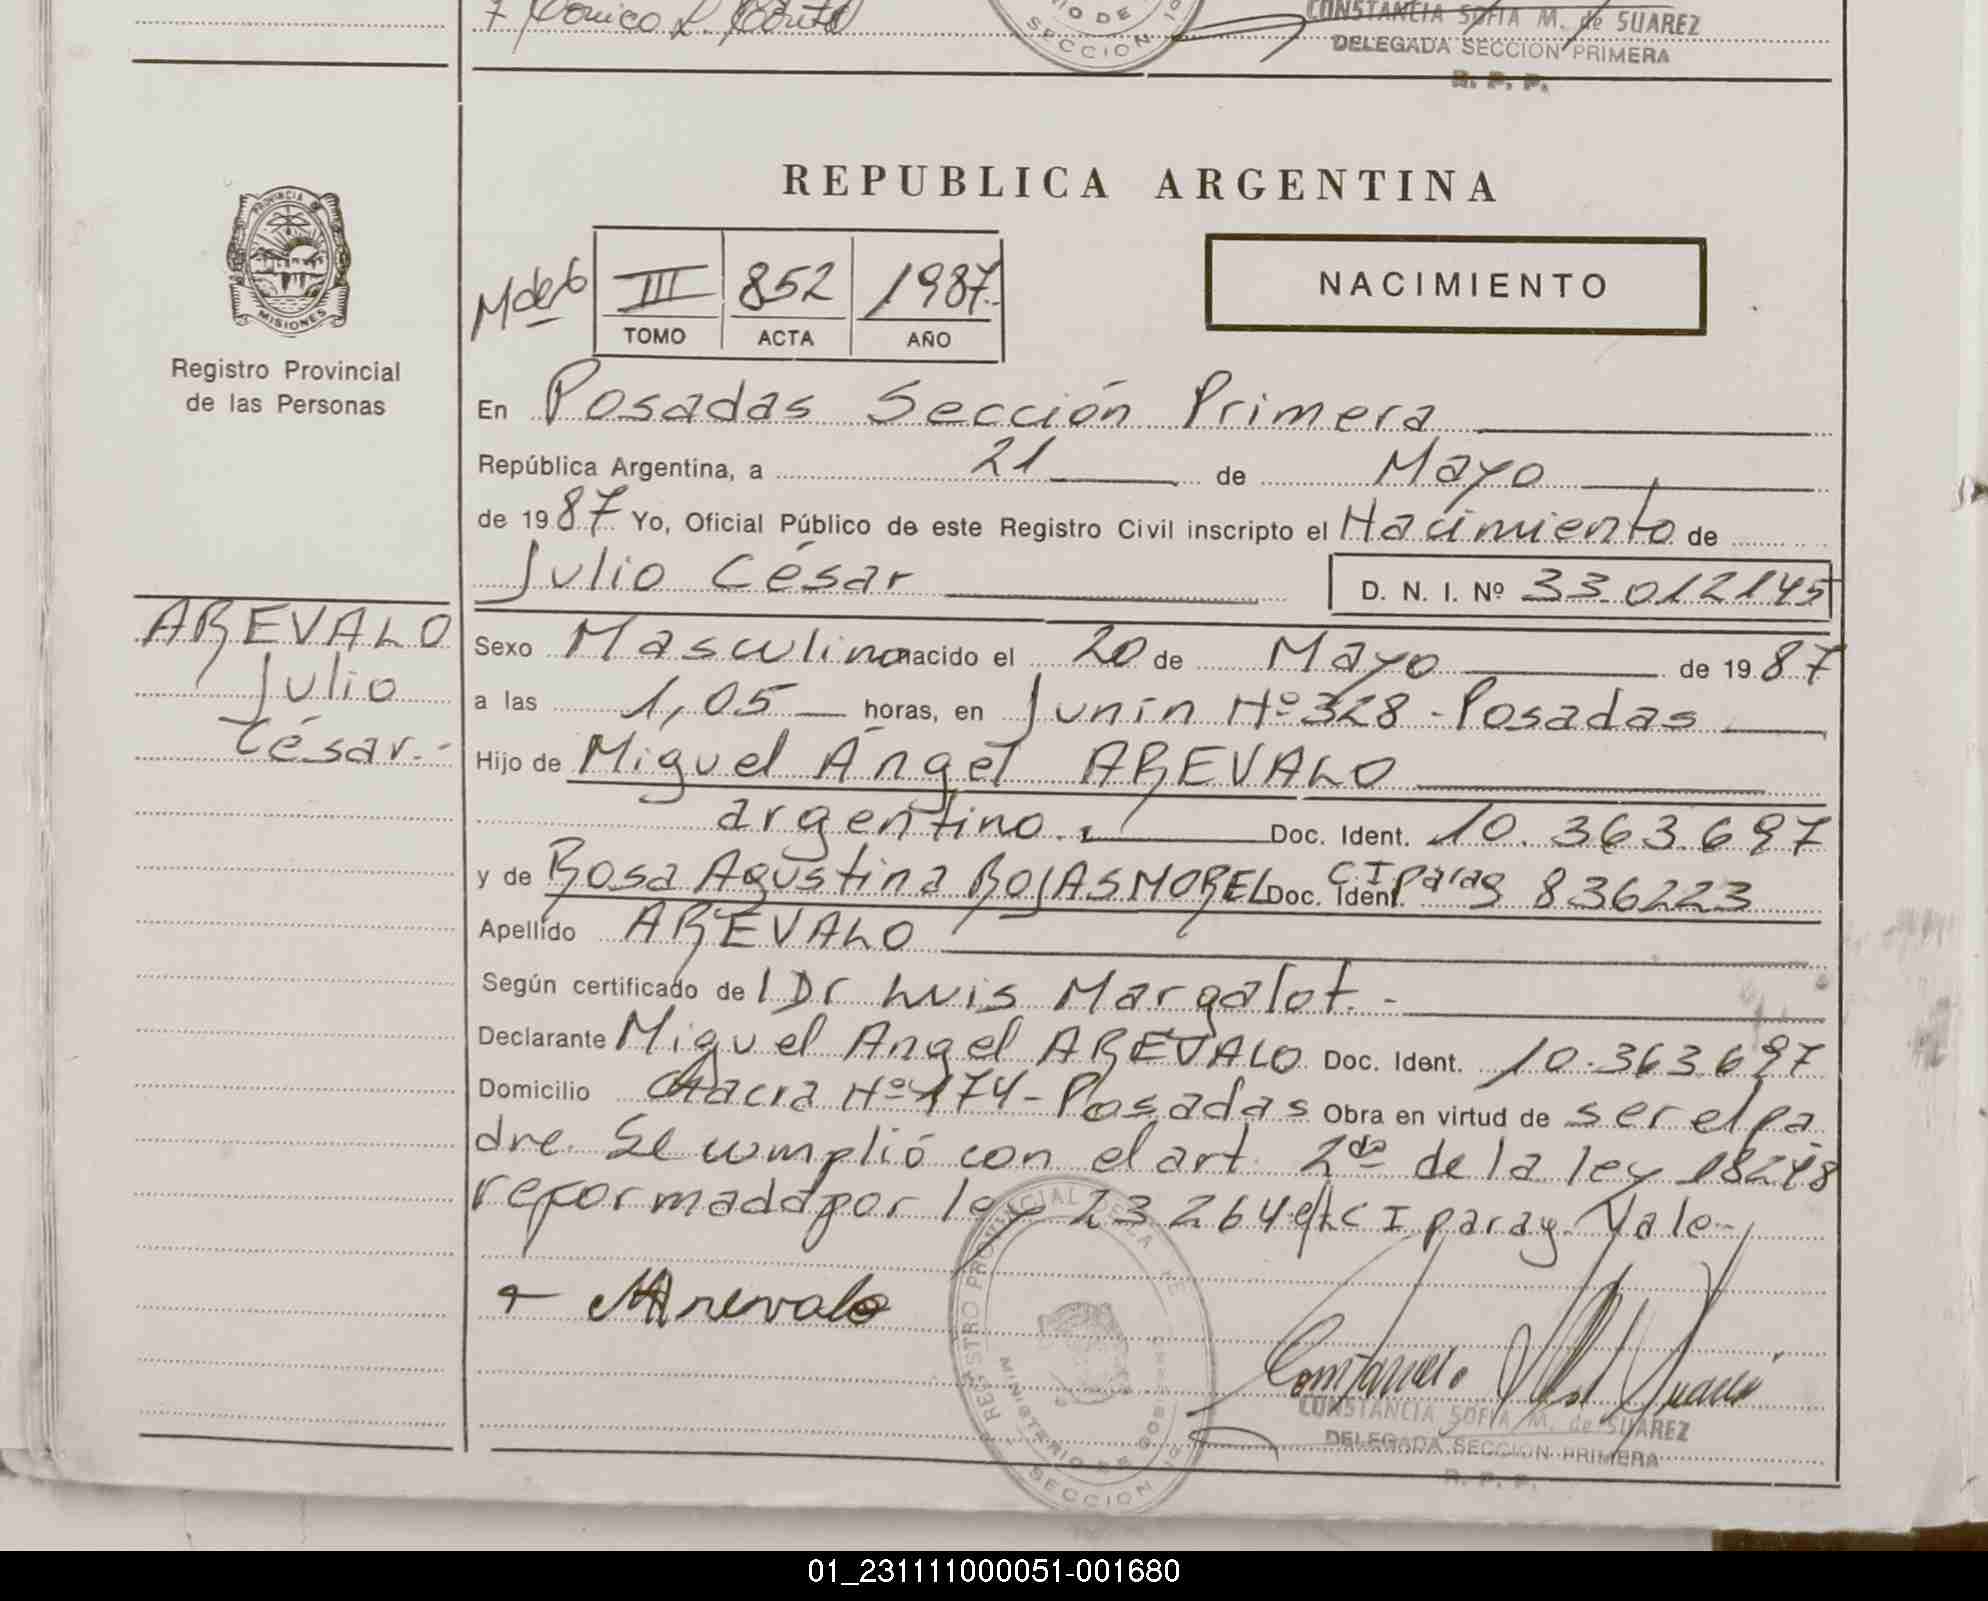 CONSTANCIA SOFIA M. de SUAREZ
DELEGADA SECCION PRIMERA
R. P. P.
REPUBLICA ARGENTINA
PROVINCIA DE
MISIONES
Registro Provincial
de las Personas
III 852 1987
TOMO ACTA AÑO
NACIMIENTO
En Posadas Sección Primera
República Argentina, a 21 de Mayo
de 1987 Yo, Oficial Público de este Registro Civil inscripto el Nacimiento de
Julio César D. N. I. Nº 33.012145
AREVALO
Julio
César.-
Sexo Masculino nacido el 20 de Mayo de 1987
a las 1,05 horas, en Junín Nº 328 - Posadas
Hijo de Miguel Ángel AREVALO
argentino. Doc. Ident. 10.363.697
y de Rosa Agustina ROJAS MOREL Doc. Ident. C.I parag 836223
Apellido AREVALO
Según certificado de l Dr Luis Margalot.-
Declarante Miguel Angel AREVALO Doc. Ident. 10.363.697
Domicilio Chacra Nº 174 - Posadas Obra en virtud de ser el pa
dre. Se cumplió con el art. 2do de la ley 18248
reformada por ley 23264 e/l C I parag. Vale-
Arevalo
REGISTRO PROVINCIAL DE LAS
MINISTERIO DE GOBIERNO
SECCION 1º
CONSTANCIA SOFIA M. de SUAREZ
DELEGADA SECCION PRIMERA
R. P. P.
01_231111000051-001680